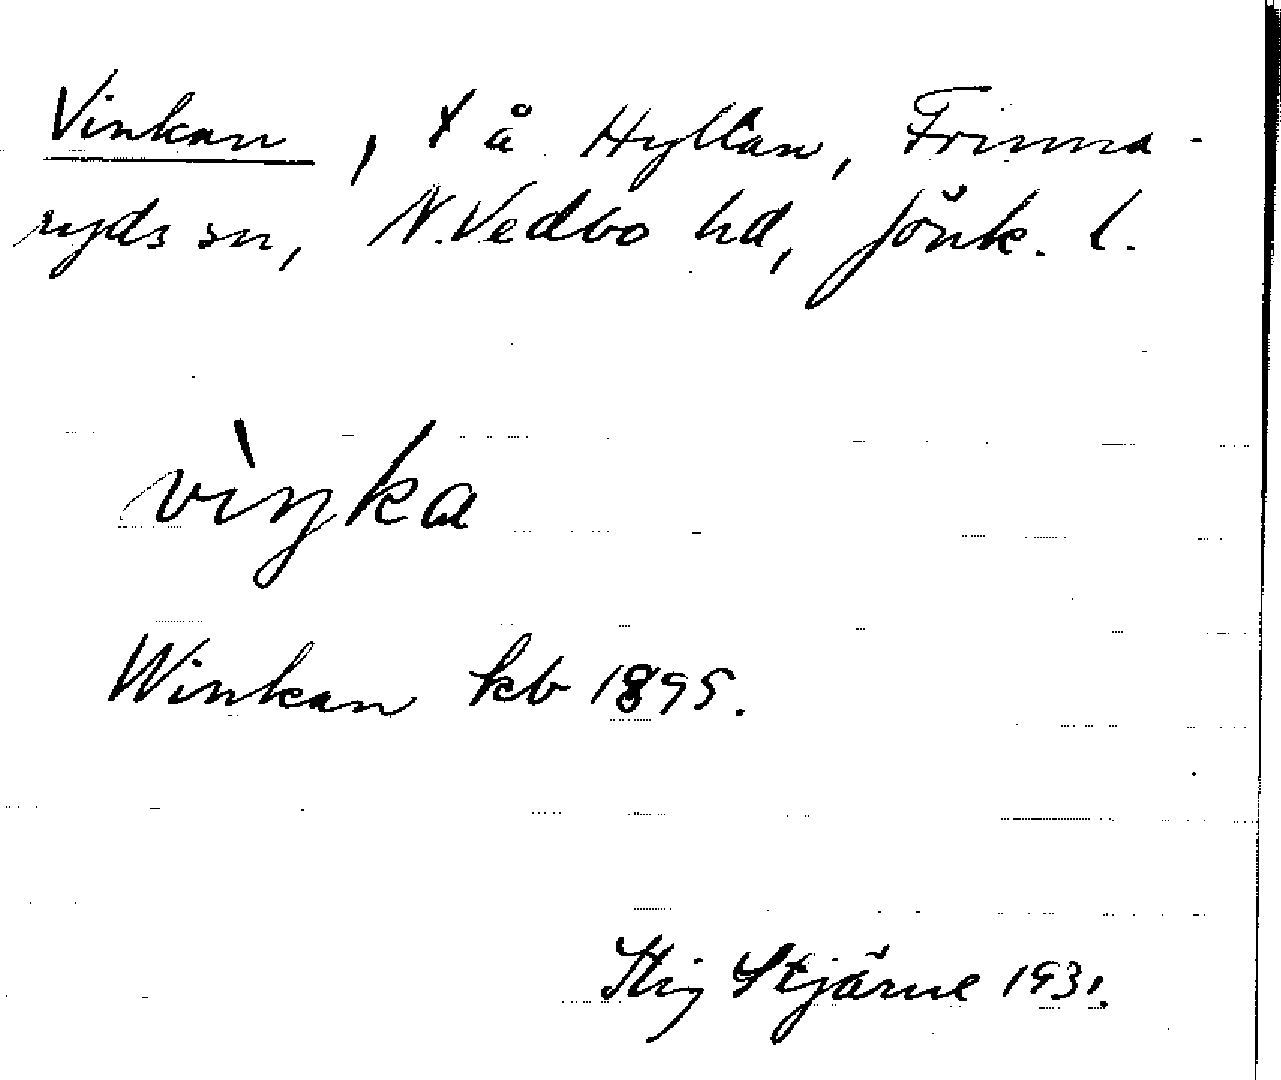 Vinkan, x å Hyllan, Frinna-
ryds sn, N. Vedbo hd, Jönk. l.
vìŋka
Winkan kb 1895.
Stig Stjärne 1931.